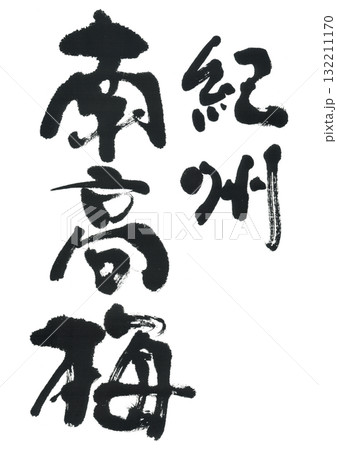 紀州
南高梅
PIXTA
pixta.jp - 132211170